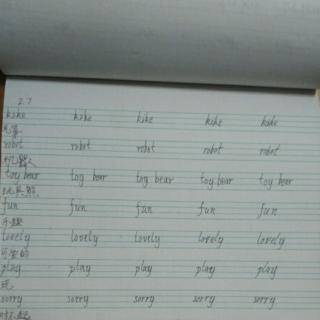 2.7
kike kike kike kike kike
robot robot robot robot robot
机器人
toy bear toy bear toy bear toy bear toy bear
玩具熊
fun fun fun fun fun
lovely lovely lovely lovely lovely
可爱的
play play play play play
玩
sorry sorry sorry sorry sorry
对不起